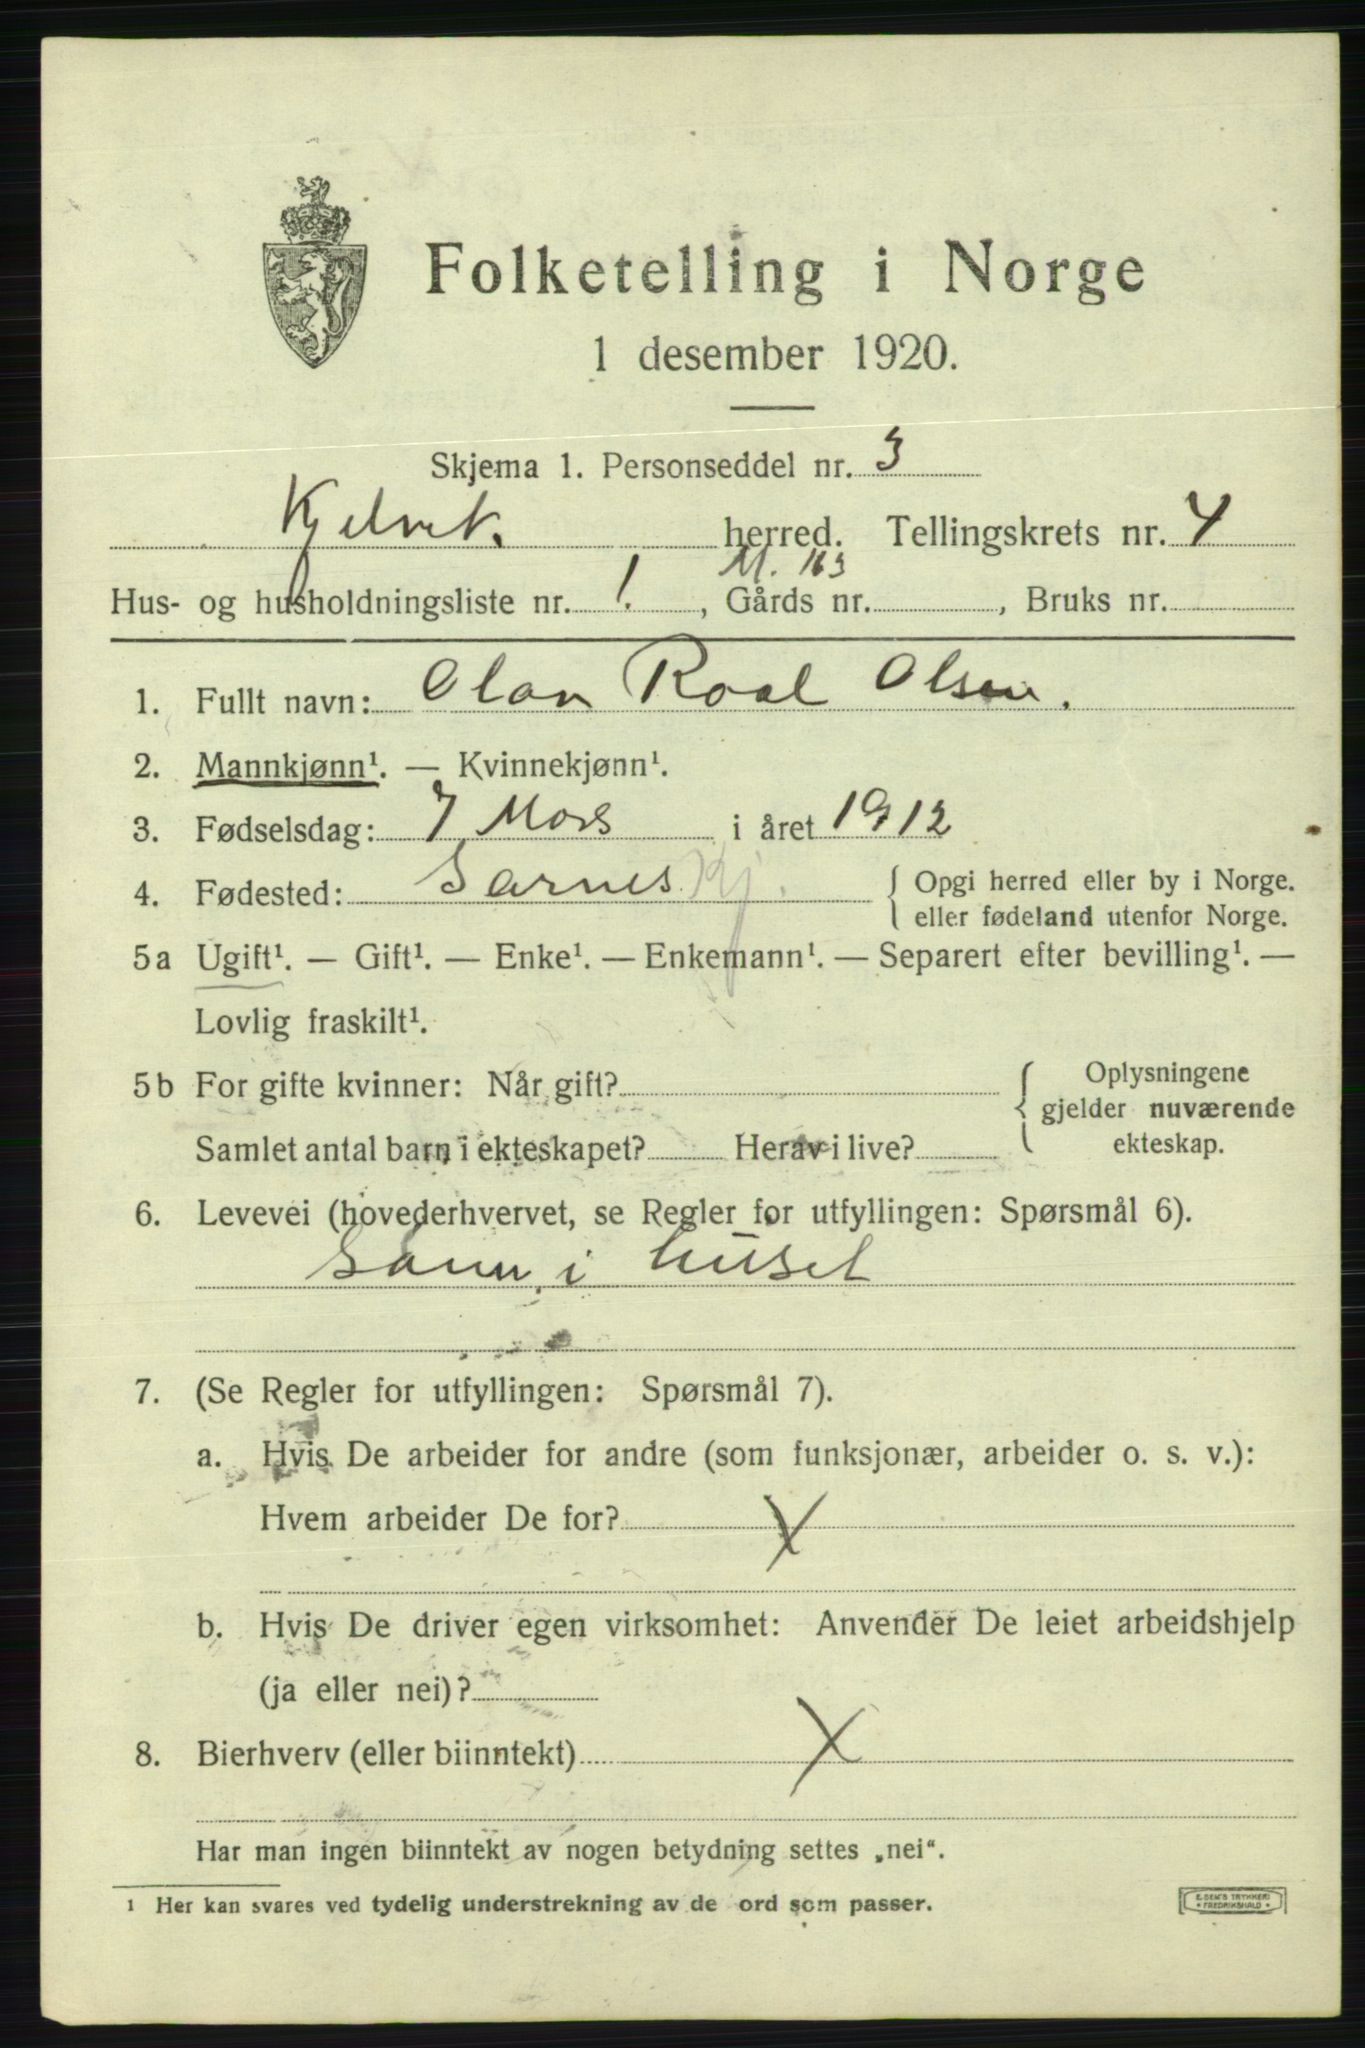 Folketelling i Norge
1 desember 1920.
Skjema 1. Personseddel nr. 3
Kjelvik. herred. Tellingskrets nr. 4
M. 163
Hus- og husholdningsliste nr. 1. , Gårds nr. , Bruks nr.
1. Fullt navn: Olav Roal Olsen.
2. Mannkjønn¹. — Kvinnekjønn¹.
3. Fødselsdag: 7 Mars i året 1912
4. Fødested: Sarnes Kj. { Opgi herred eller by i Norge.
eller fødeland utenfor Norge.
5a Ugift¹. — Gift¹. — Enke¹. — Enkemann¹. — Separert efter bevilling¹. —
Lovlig fraskilt¹.
5b For gifte kvinner: Når gift? { Oplysningene
gjelder nuværende
ekteskap.
Samlet antal barn i ekteskapet? Herav i live?
6. Levevei (hovederhvervet, se Regler for utfyllingen: Spørsmål 6).
Sønn i huset
7. (Se Regler for utfyllingen: Spørsmål 7).
a. Hvis De arbeider for andre (som funksjonær, arbeider o. s. v.):
Hvem arbeider De for? X
b. Hvis De driver egen virksomhet: Anvender De leiet arbeidshjelp
(ja eller nei)?
8. Bierhverv (eller biinntekt) X
Har man ingen biinntekt av nogen betydning settes „nei“.
¹ Her kan svares ved tydelig understrekning av de ord som passer.
E. SEM'S TRYKKERI
FREDRIKSHALD